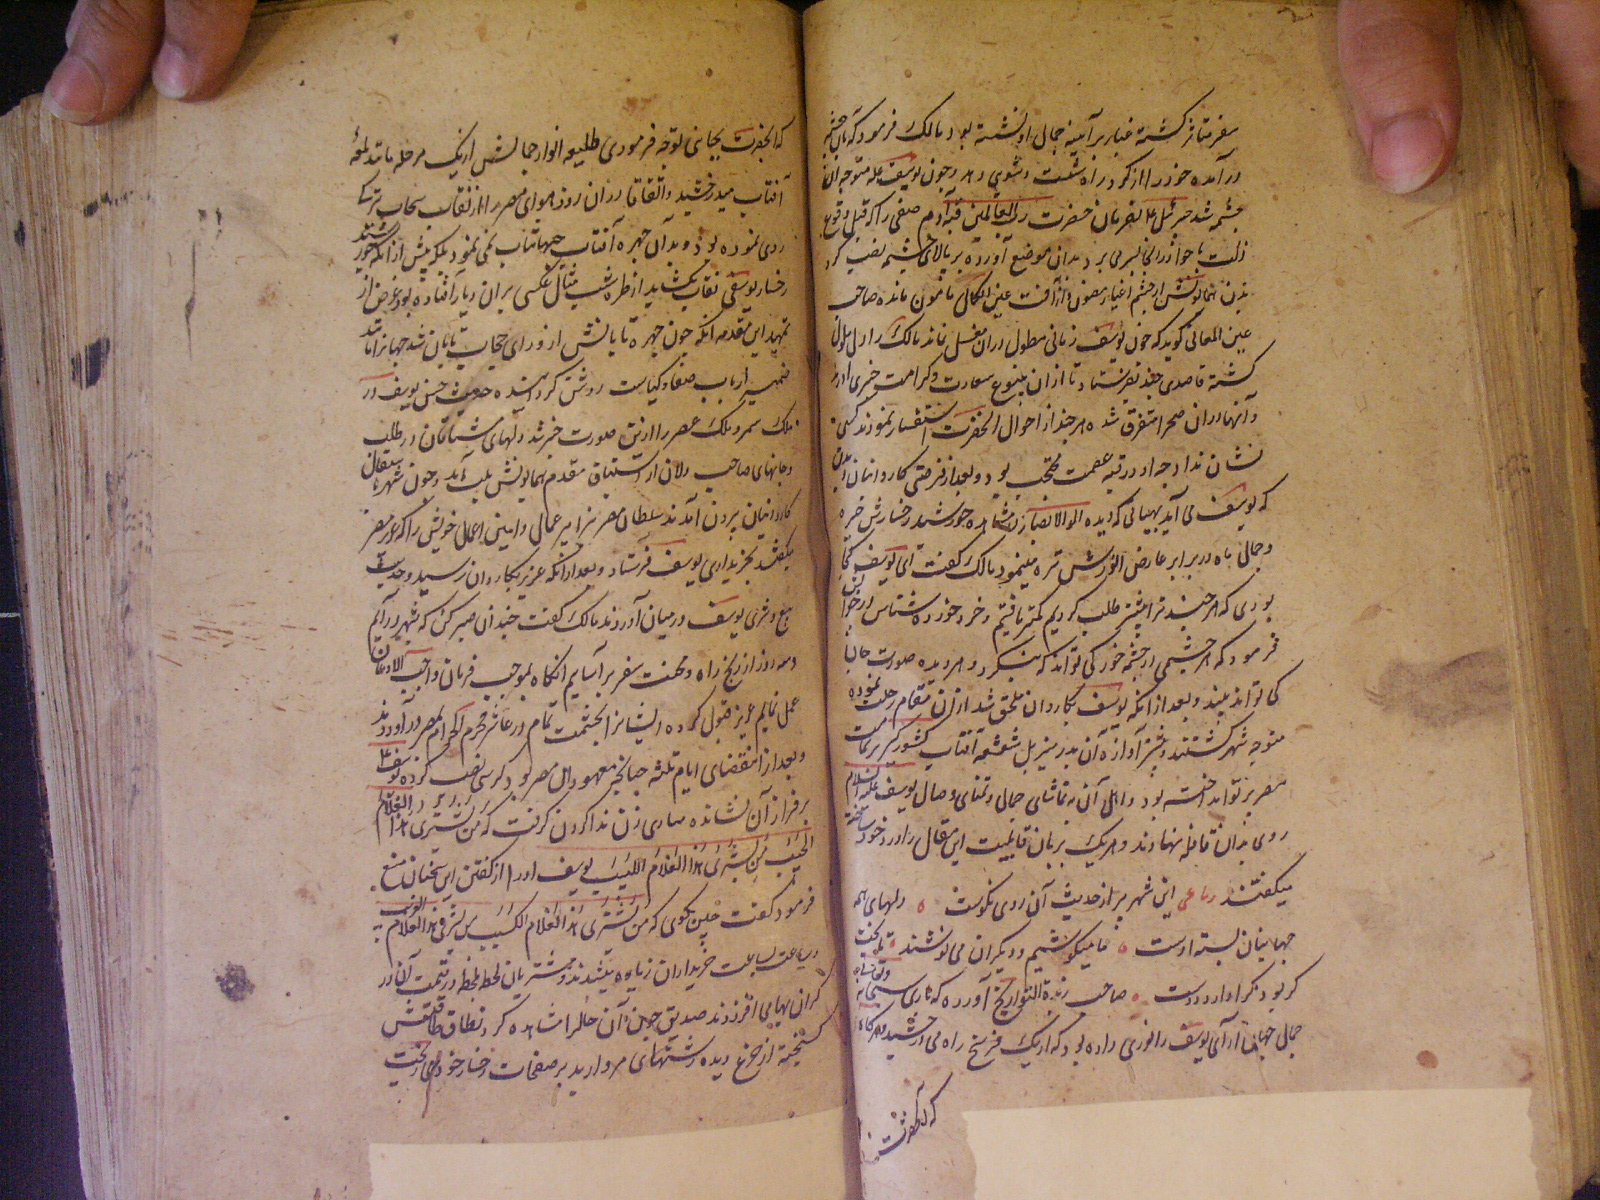 سفر متاثر کشته غبار بر آیینه جمال او نشسته بود مالک فرمود که بان چشمه
در آمده خود را از کرد راه شست و شوی دهد و چون یوسف علیه متوجه آن
چشمه شد جبرئیل بفرمان حضرت رب العالمین قبه آدم صفی را که قبل وقوع
زلت با حوا در آنجا بسر می برد بدان موضع آورده بر بالای چشمه نصب کرد
بدن همایونش از چشم اغیار مصون و از آفت عین الکمال مامون مانده صاحب
عین المعانی کوید که چون یوسف زمانی مطول در ان مغسل بماند مالک را دل ملول
کشته قاصدی چند بفرستاد تا از ان ینبوع سعادت و کرامت خبری آورند
و آنها در ان صحرا متفرق شده هر چند از احوال آنحضرت استفسار نمودند کسی
نشان نداد چه او در قبه عصمت محتجب بود و بعد از فرصتی کاروانیان دیدند
که یوسف می آید بهیاتی که دیده اولو الابصار از مشاهده خورشید رخسارش خیره
و جمال ماه در برابر عارض انورش تیره مینمود مالک کفت ای یوسف کجا
بودی که هر چند ترا بیشتر طلب کردیم کمتر یافتیم و خرد خورده شناس از خوان
فرمود که هر چشمی از چشمه خور کی تواند که بنکرد و هر دیده صورت جان
کی تواند بیند و بعد از انکه یوسف بکاروان ملحق شد از ان مقام رحلت نموده
متوجه شهر کشتند و پیشتر آوازه آن بدر منیر بل شعشعه آفتاب کشور کیر بر مملکت
مصر پرتو انداخته بود و اهالی آن به تماشای جمال و تمنای وصال یوسف علیه السلام
روی بدان قافله نهادند و هر یک بزبان قابلیت این مقال را ورد خود ساخته
میکفتند رباعی این شهر پر از حدیث آن روی نکوست دلهای همه
جهانیان بسته اوست ما میکوشیم و دیکران می کوشند تا بخت
کرا بود کرا دارد دوست صاحب زبدة التواریخ آورده که باری سبحانه و تعالی
جمال جهان آرای یوسف را نوری داده بود که از یک فرسخ راه می درخشید و هر کاه
که آنحضرت
که آنحضرت بجانبی توجه فرمودی طلیعه انوار جمالش از یک مرحله مانند لمعه
آفتاب میدرخشید و اتفاقا در ان روز هوای مصر را از نقاب سحاب
روی نموده بود و بدان چهره آفتاب جهانتاب نمی نمود بلکه پیش از انکه
رخسار یوسفی نقاب بکشاید از طره شب مثال عکسی بران دیار افتاده بود غرض از
تمهید این مقدمه آنکه چون چهره تابانش از ورای حجاب تابان شد جهانرا مانند
ضمیر ارباب صفا و کیاست روشن کردانیده حدیث حسن یوسف در
ملک سمر و ملک عصر را از این صورت خبر شد و دلهای مشتاقان در طلب
و جانهای صاحب دلان از اشتیاق مقدم همایونش بلب آمد و چون شهریان باستقبال
کاروانیان بیرون آمدند سلطان مصر نیز امیر عمال و امین اعمال خویش را که عزیز مصر
میکفتند بخریداری یوسف فرستاد و بعد از انکه عزیز بکاروان رسید و حدیث
بیع و شری یوسف در میان آوردند مالک کفت چندان صبر کن که بشهر در آیم
و سه روز از رنج راه و محنت سفر بر آسایم انکاه بموجب فرمان واجب الاذعان
عمل نمایم عزیز قبول کرده ایشانرا بحشمت تمام در عاشر محرم الحرام بمصر در آوردند
و بعد از انقضای ایام ثلثه چنانچه معهود اهل مصر بود کرسی نصب کرده یوسف را
بر فراز آن نشانده منادی زن ندا کردن کرفت که من یشتری هذا الغلام
الحبیب من یشتری هذا الغلام اللبیب یوسف او را از کفتن این سخنان منع
فرمود کفت چنین کوی که من یشتری هذا الغلام الکئیب من یشتری هذا الغلام الغریب
و ساعت بساعت خریداران زیاده میشدند و مشتریان لحظه بلحظه در قیمت آن در
کران بهای می افزودند صدیق چون آن حال را مشاهده کرد نطاق طاقتش
کسیخته از جزع دیده رشتهای مروارید بر صفحات رخسار خود می ریخت